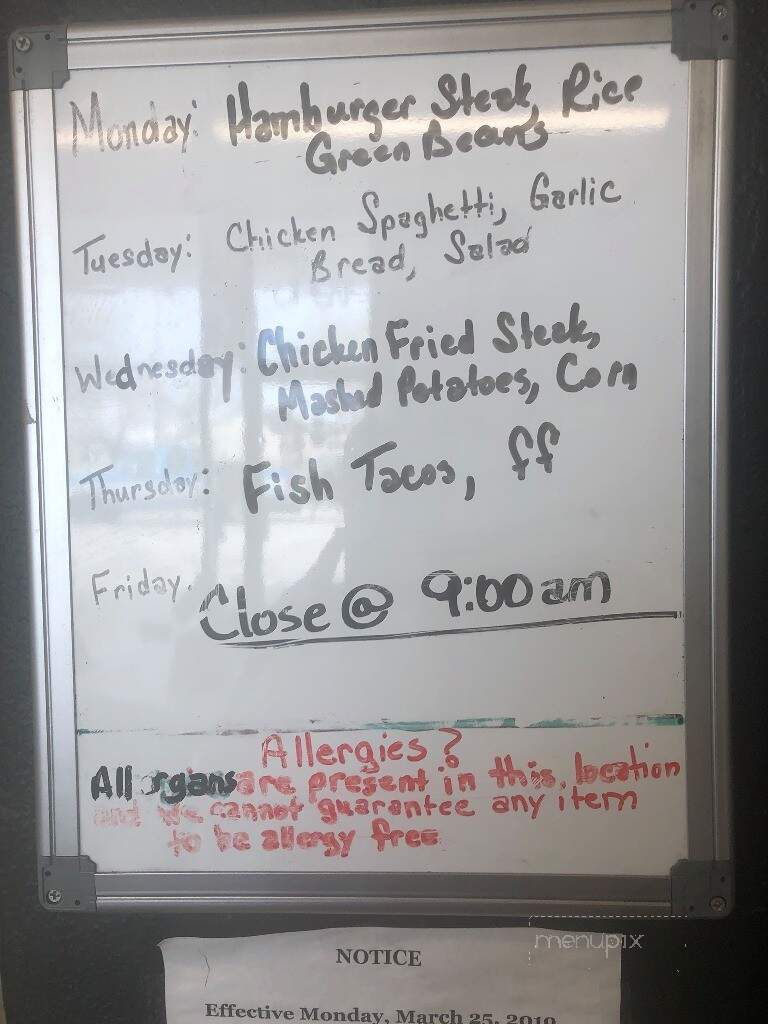 Monday: Hamburger Steak, Rice
Green Beans
Tuesday: Chicken Spaghetti, Garlic
Bread, Salad
Wednesday: Chicken Fried Steak,
Mashed Potatoes, Corn
Thursday: Fish Tacos, ff
Friday. Close @ 9:00am
Allergies?
All rgans are present in this location
and we cannot guarantee any item
to be allergy free
menupix
NOTICE
Effective Monday, March 25, 2019